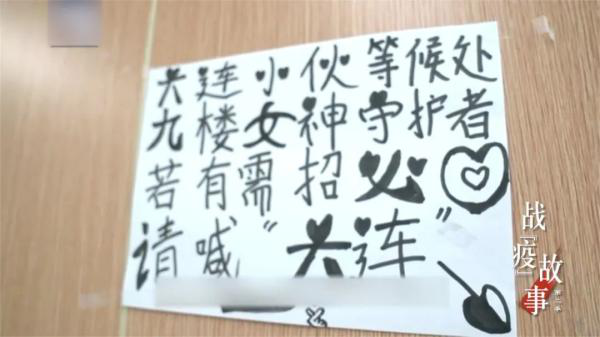 大连小伙等候处
九楼女神守护者
若有需招必
请喊"大连"
战"疫"
故事
第二季